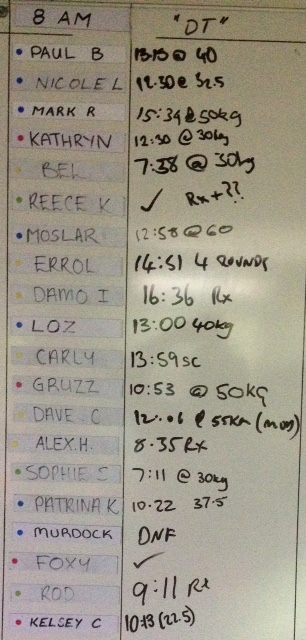 8 AM "DT"
PAUL B 13:13 @ 40
NICOLE L 12:30 @ 32.5
MARK R 15:34 @ 50kg
KATHRYN 12:30 @ 30kg
BEL 7:38 @ 30kg
REECE K ✓ Rx+??
MOSLAR 12:58 @ 60
ERROL 14:51 4 ROUNDS
DAMO I 16:36 Rx
LOZ 13:00 40kg
CARLY 13:59 sc
GRUZZ 10:53 @ 50kg
DAVE C 12.06 @ 55KG
ALEX.H. 8.35 Rx
SOPHIE S 7:11 @ 30kg
PATRINA K 10.22 37.5
MURDOCK DNF
FOXY ✓
ROD 9:11 Rx
KELSEY C (22.5)